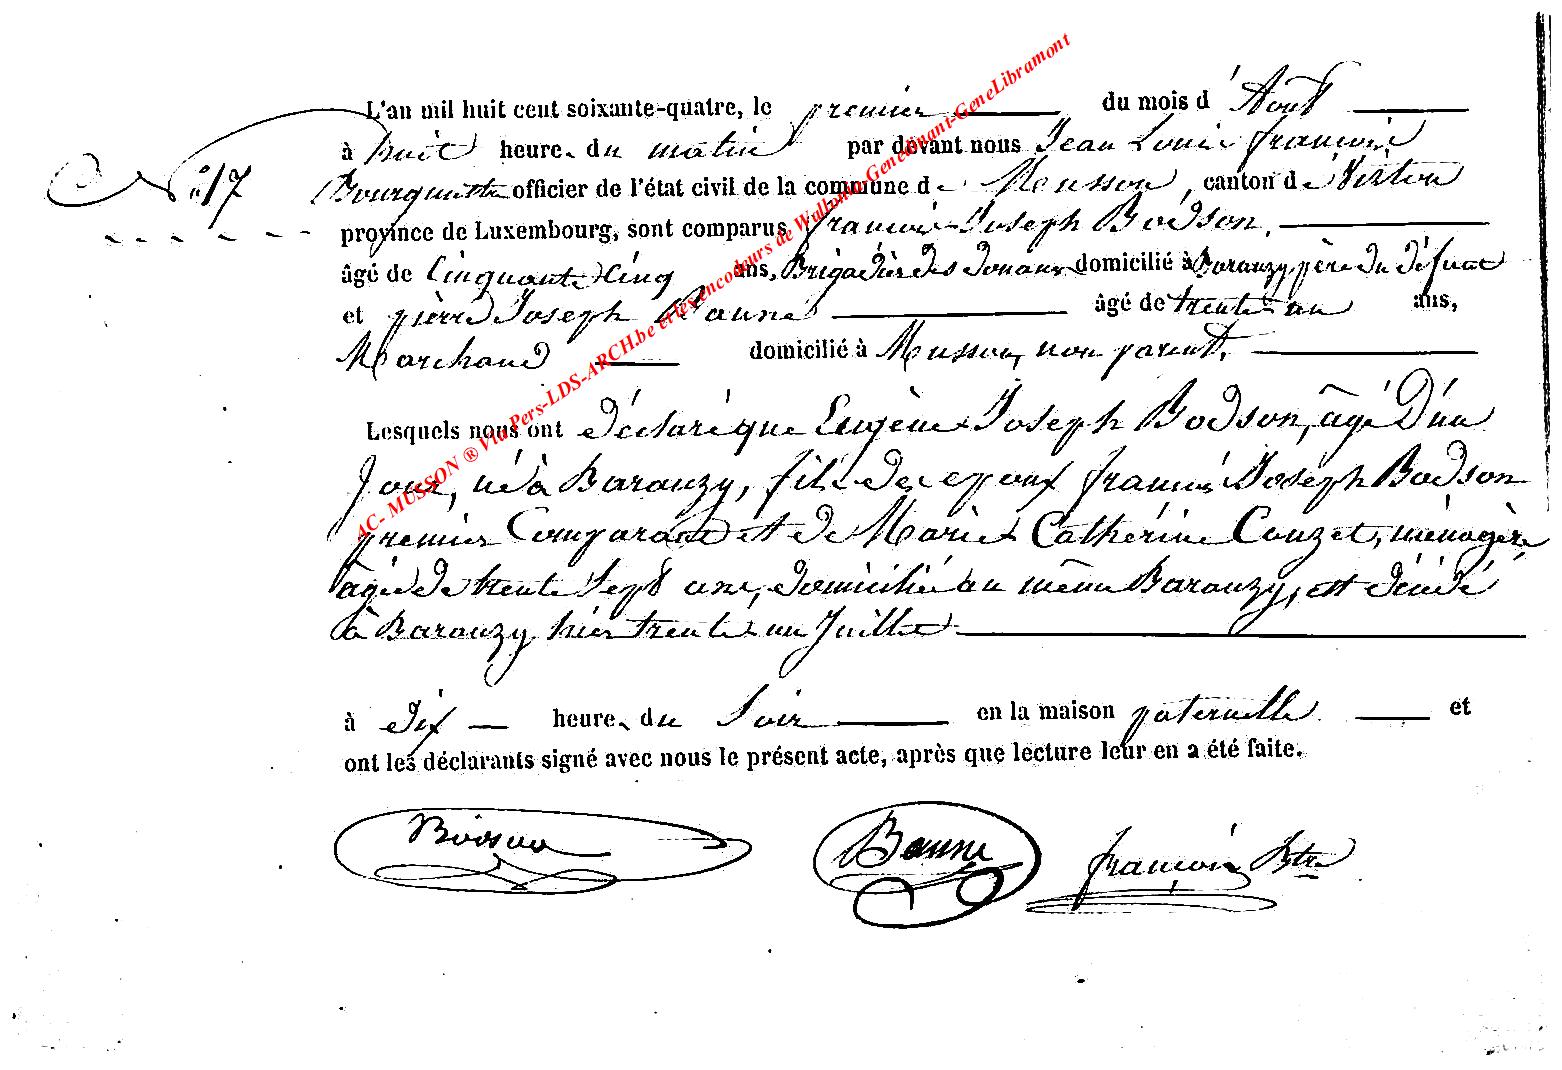 L'an mil huit cent soixante-quatre, le premier du mois d'Août
à huit heures du matin par devant nous Jean Louis françois
N° 17 Bourguette officier de l'état civil de la commune de Musson, canton de Virton
province de Luxembourg, sont comparus françois Joseph Bodson,
âgé de Cinquante Cinq ans, Brigadier des douanes domicilié à Baranzy, père du défunt
et pierre Joseph Baune âgé de trente un ans,
Marchand domicilié à Musson, non parent.
Lesquels nous ont déclaré que Eugène Joseph Bodson, âgé D'un
Jour, né à Baranzy, fils des epoux françois Joseph Bodson
premier Comparant et de Marie Catherine Couzet, ménagère
âgée de trente Sept ans, domicilié au même Baranzy, est décédé
à Baranzy hier trente un Juillet
à dix heures du Soir en la maison paternelle et
ont les déclarants signé avec nous le présent acte, après que lecture leur en a été faite.
Bodson Baune françois Btte
AC- MUSSON ® Via Pers-LDS-ARCH.be et les encodeurs de Wallonia-Genedinant-GeneLibramont